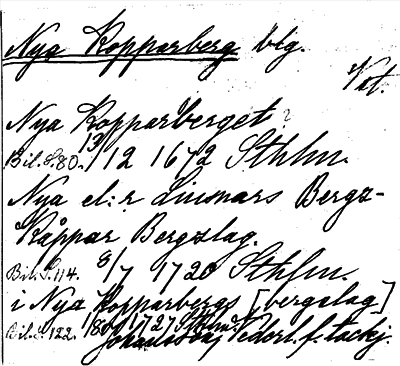 Nya Kopparberg blg.
Vst.
Nya Kopparberget?
Bil. S. 80. 13/12 1672 Sthlm.
Nya el: r Liusnars Bergz-
Kåppar Bergzlag.
Bil. S. 114. 8/7 1720 Sthlm.
i Nya Kopparbergs [bergslag]
Bil. S. 122. 1727 Sthlm.
f. tackj.